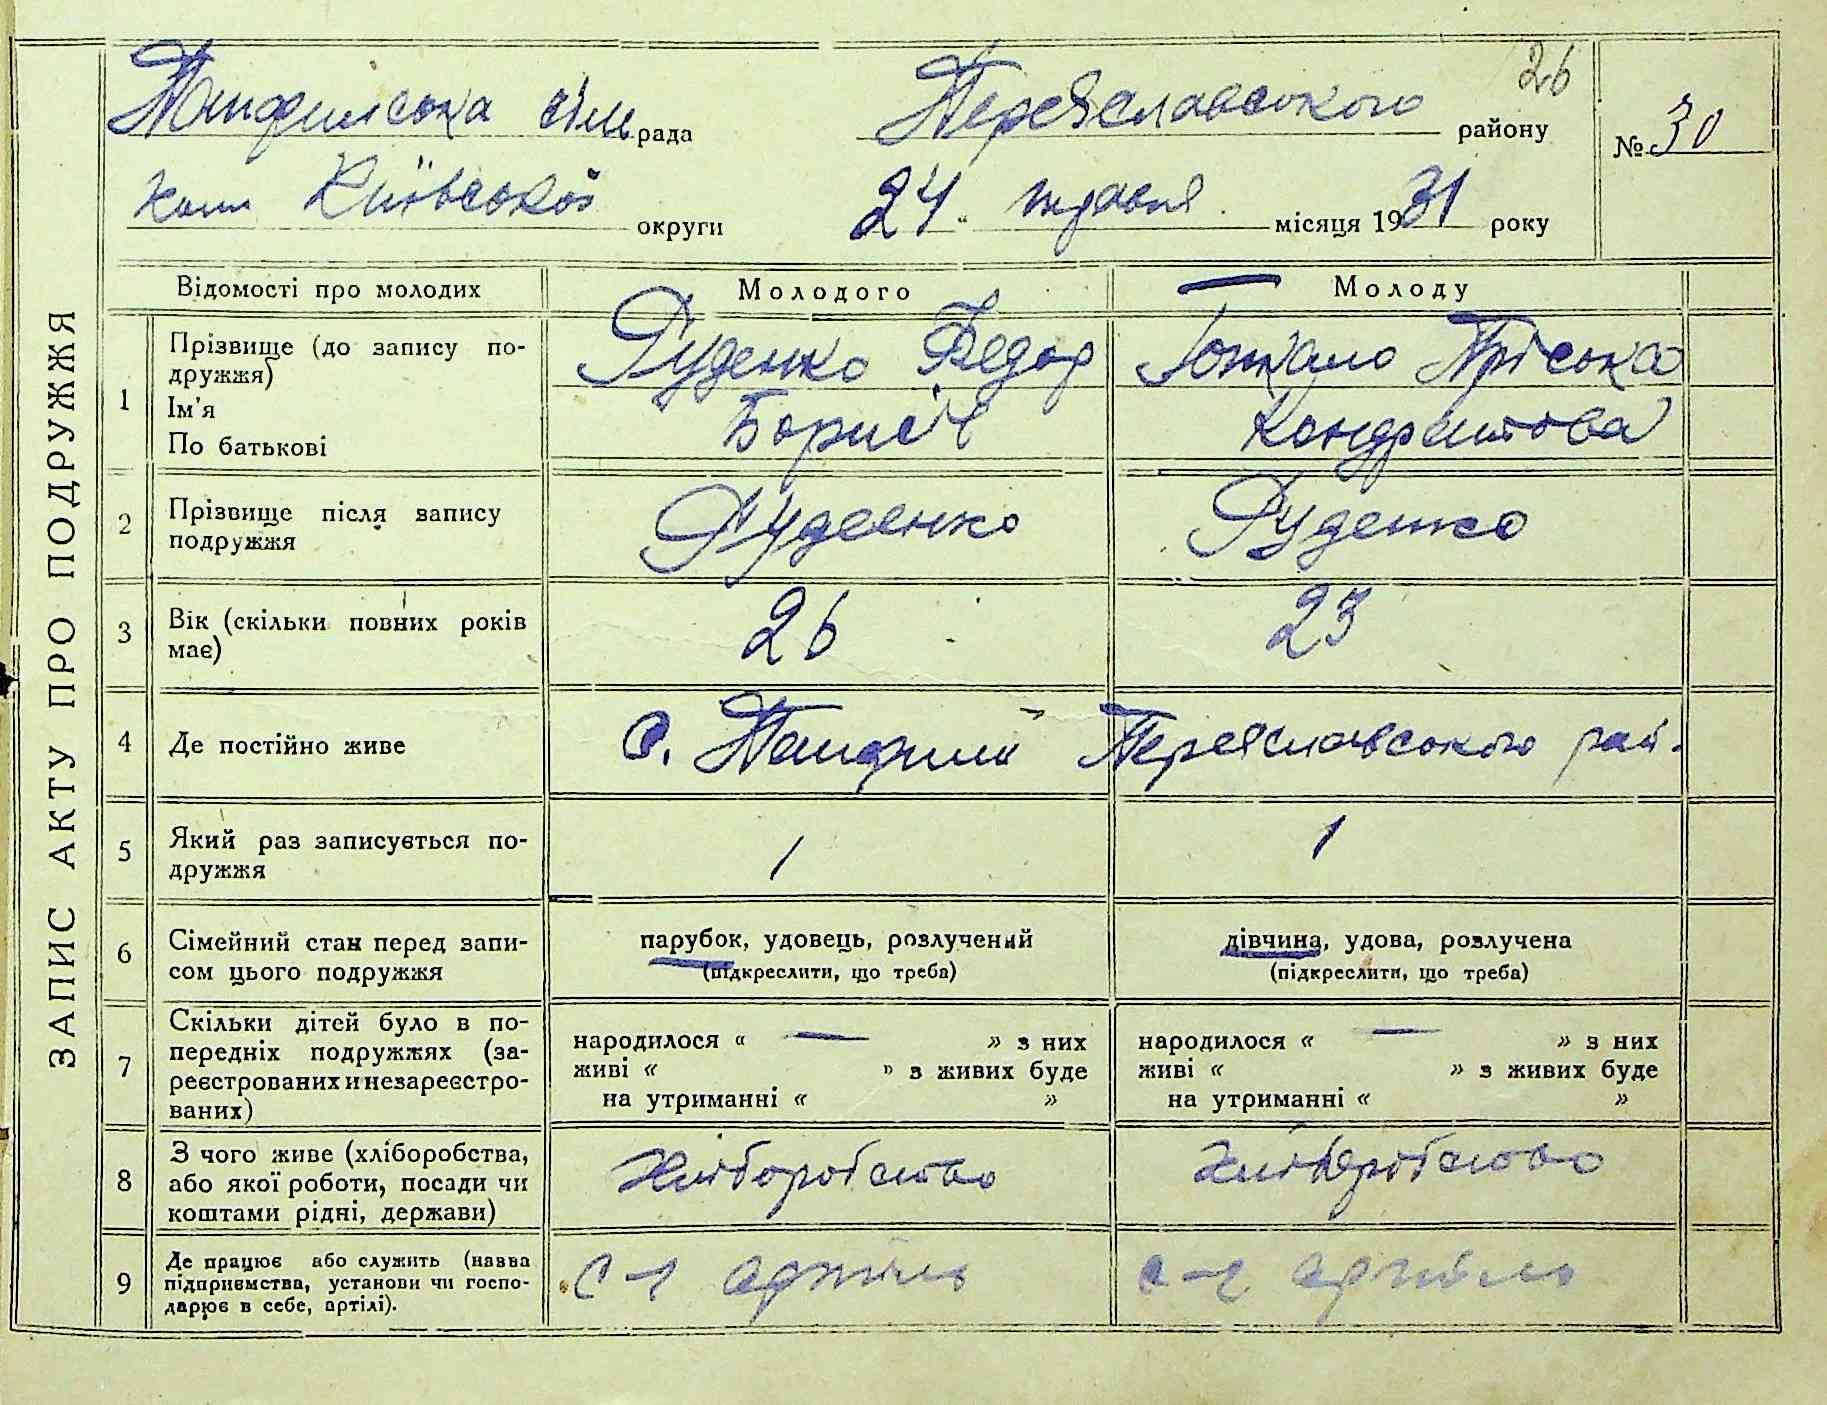 26
Панфилська сіль рада Переяславського району № 30
кол Київської округи 24 " травня місяця 1931 року
ЗАПИС АКТУ ПРО ПОДРУЖЖЯ
Відомості про молодих Молодого Молоду
1 Прізвище (до запису по-
дружжя)
Ім'я
По батькові
Руденко Федор
Борисів
Пріська
Кондратова
2 Прізвище після запису
подружжя
Руденко Руденко
3 Вік (скільки повних років
має)
26 23
4 Де постійно живе с. Панфили Переяславського рай.
5 Який раз записується по-
дружжя
1 1
6 Сімейний стан перед запи-
сом цього подружжя
парубок, удовець, розлучений
(підкреслити, що треба)
дівчина, удова, розлучена
(підкреслити, що треба)
7 Скільки дітей було в по-
передніх подружжях (за-
реєстрованих и незареєстро-
ваних)
народилося « — » з них
живі « » з живих буде
на утриманні « »
народилося « — » з них
живі « » з живих буде
на утриманні « »
8 З чого живе (хліборобства,
або якої роботи, посади чи
коштами рідні, держави)
Хліборобство Хліборобство
9 Де працює або служить (назва
підприємства, установи чи госпо-
дарює в себе, артілі).
с-г артіль с-г артіль